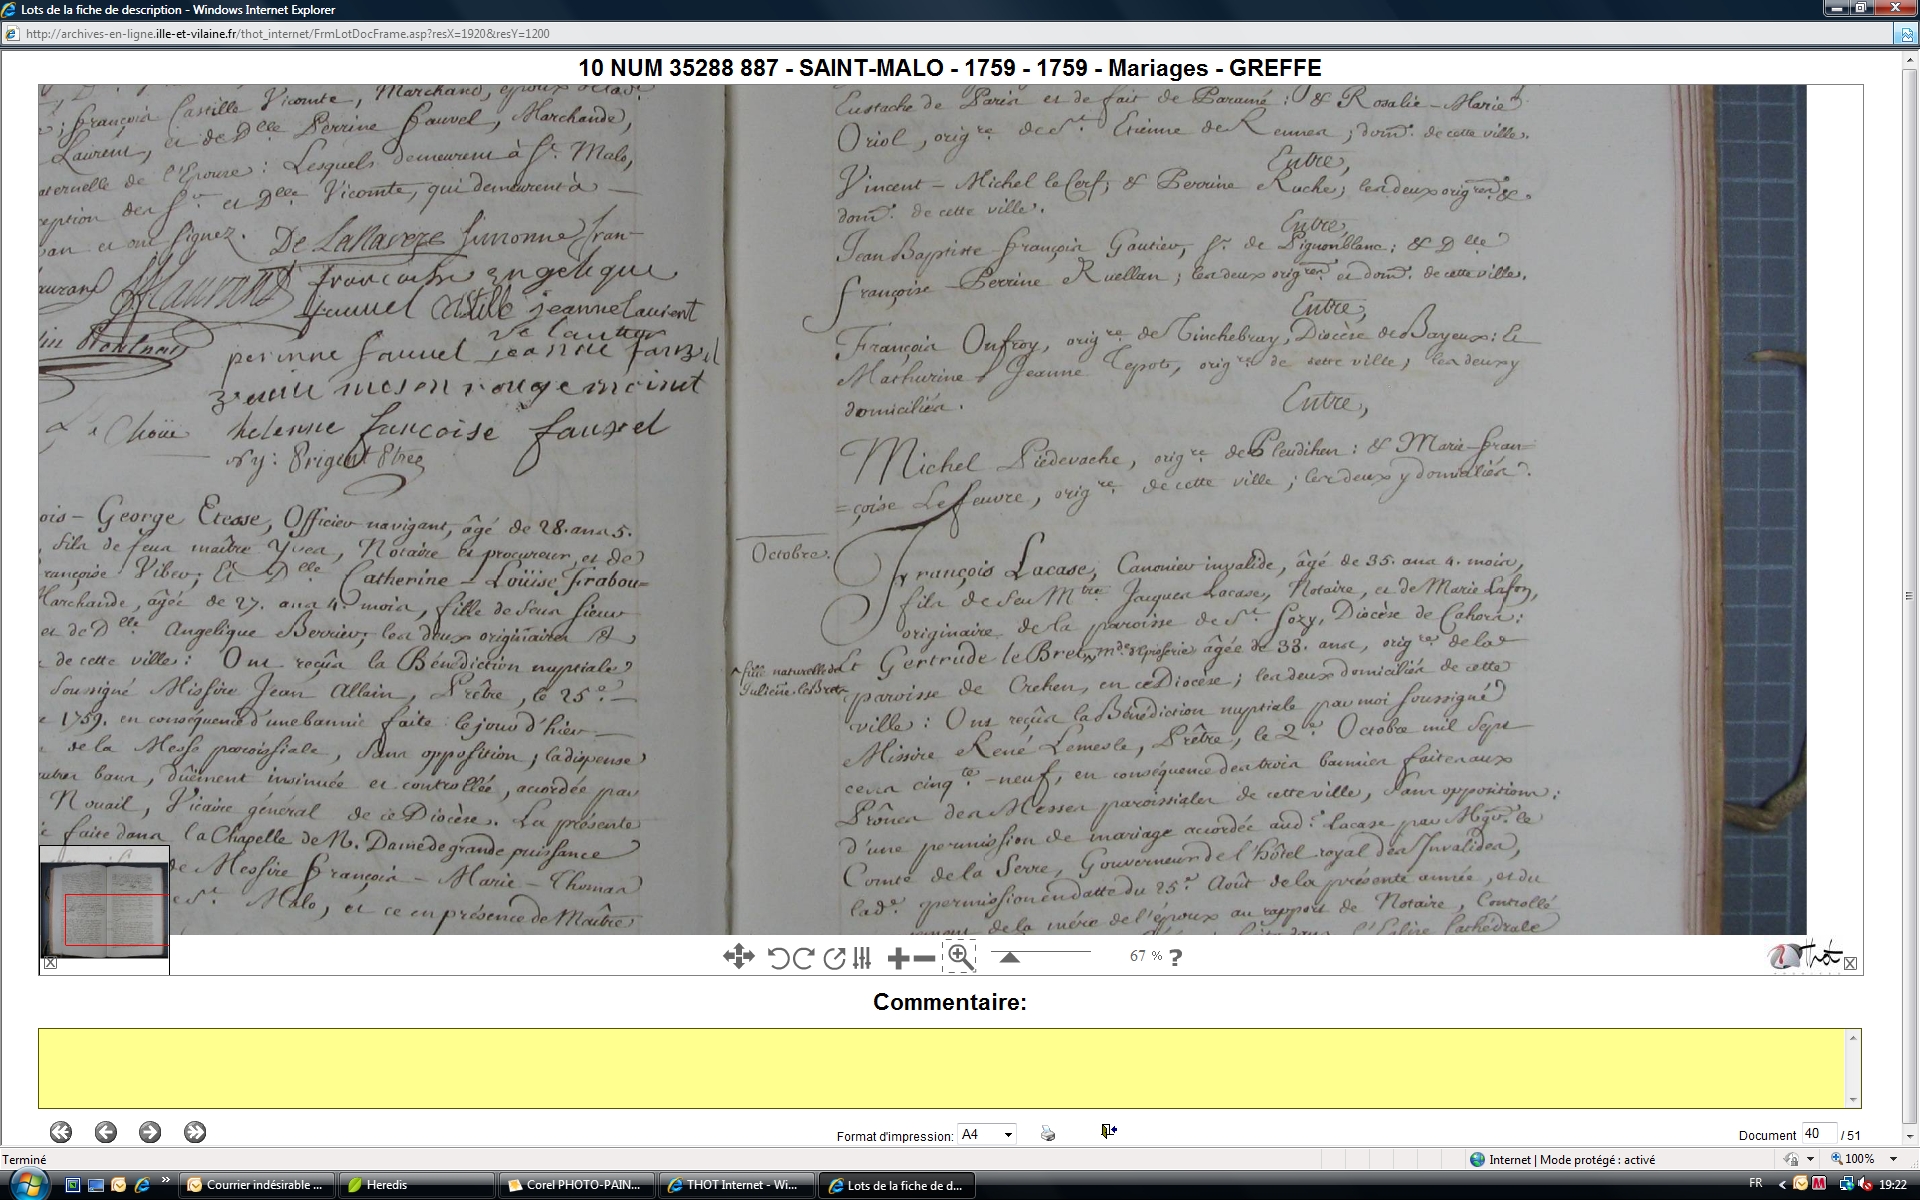 Lots de la fiche de description - Windows Internet Explorer
http://archives-en-ligne.ille-et-vilaine.fr/thot_internet/FrmLotDocFrame.asp?resX=1920&resY=1200
10 NUM 35288 887 - SAINT-MALO - 1759 - 1759 - Mariages - GREFFE
François Castille Vicomte, Marchand, époux
Laurent, et de Dlle Perrine Fauvel, Marchande,
aternelle de l'Epouse : Lesquels demeurent à St. Malo,
eption des Sr. et Dlle Vicomte, qui demeurent à
an et ont signez. De LaRavere Simonne fran-
francoise angelique
fauvel Castille jeanne laurent
perinne fauvel jeanne
rouge moinet
helenne francoise fauvel
ois - George Etease, Officier navigant, âgé de 28. ans 5.
fils de feu maître Yves, Notaire et procureur, et de
rançoise Vibert; Et Dlle Catherine - Loüise Frabou=
Marchande, âgée de 27. ans 4. mois, fille de feu sieur
et de Dlle Angelique Berrier, les deux originaires &
de cette ville : Ont reçûs la Bénédiction nuptiale
soussigné Missire Jean Allain, Prêtre, le 25e.
1759. en conséquence d'une bannie faite le jour d'hier
de la Messe paroissiale, sans opposition; la dispense
autres bans, dûement insinuée et controllée, accordée par
Nouail, Vicaire général de ce Diocèse. La présente
faite dans la Chapelle de N. Dame de grande puissance
de Messire François - Marie - Thomas
St. Malo, et ce en présence de Maître
Eustache de Paris et de fait de Paramé : & Rosalie - Marie
Oriol, origre. de St. Etienne de Rennes; domt. de cette ville.
Entre,
Vincent - Michel le Cerf; & Perrine Ruche; les deux origres. &
domt. de cette ville.
Entre,
Jean Baptiste François Gautier, Sr. de Pignonblanc; & Dlle
Françoise - Perrine Ruellan; les deux origres et domt. de cette ville.
Entre,
François Onfroy, origre de Tinchebray, Diocèse de Bayeux : &
Mathurine Jeanne Tepot, origre de cette ville, les deux y
domiciliés.
Entre,
Michel Piedevache, origre de Pleudihen : & Marie-Fran=
=çoise Lefeuvre, origre de cette ville; les deux y domiciliés.
Octobre.
François Lacase, Canonier invalide, âgé de 35. ans 4. mois,
fils de feu Mtre Jacques Lacase, Notaire, et de Marie Lafon,
originaire de la paroisse de St. Sozy, Diocèse de Cahors :
Et Gertrude le Bret, mde. d'Episerie âgée de 33. ans, origre de la
^ fille naturelle de
Julienne le Bret
paroisse de Crehen, en ce Diocèse; les deux domiciliés de cette
ville : Ont reçûs la Bénédiction nuptiale par moi soussigné
Missire René Lemesle, Prêtre, le 2e. Octobre mil sept
cens cinqte-neuf, en conséquence des trois bannies faites aux
Prônes des Messes paroissiales de cette ville, sans opposition;
d'une permission de mariage accordée audt. Lacase par Mgr. le
Comte de la Serre, Gouverneur de l'hôtel royal des Invalides,
lade. permission en datte du 25e. Août de la présente année, et du
de la mère de l'époux au rapport de Notaire, Controllé
l'Eglise Cathédrale
67 % ?
Thot
Commentaire:
Format d'impression: A4
Document 40 / 51
Terminé
Internet | Mode protégé : activé
100%
Courrier indésirable ...
Heredis
Corel PHOTO-PAIN...
THOT Internet - Wi...
Lots de la fiche de d...
FR
19:22